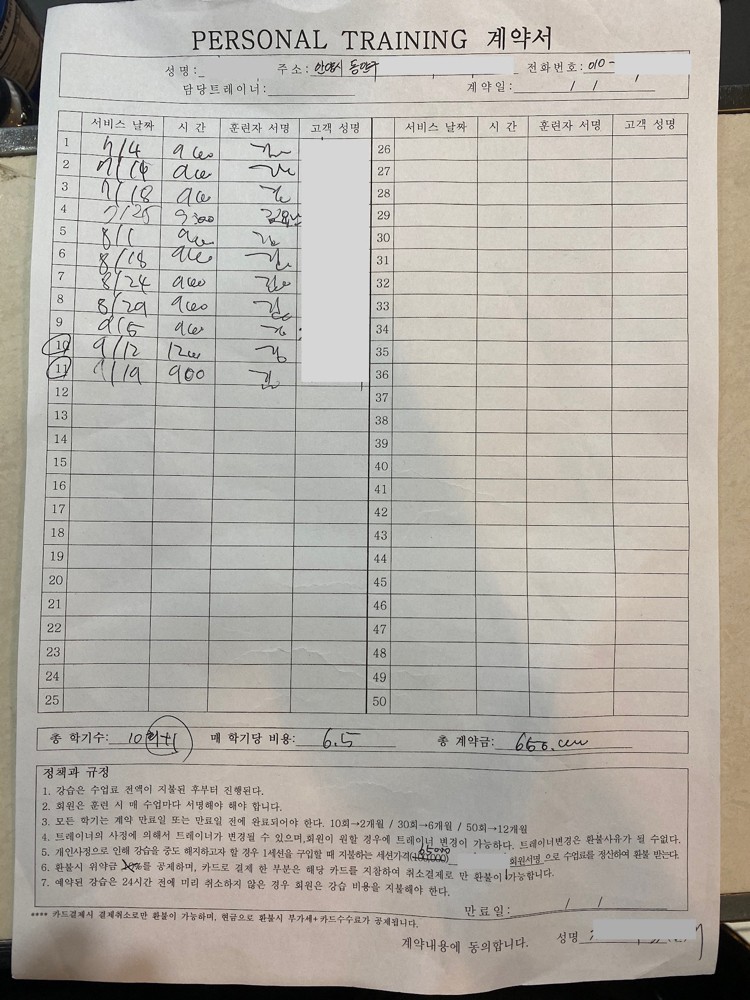 PERSONAL TRAINING 계약서
성명: 주소: 안양시 동안구 전화번호: 010-
담당트레이너: 계약일: / /
서비스 날짜 시 간 훈련자 서명 고객 성명 서비스 날짜 시 간 훈련자 서명 고객 성명
1 7/4 9:00 26
2 7/14 9:00 27
3 7/18 9:00 28
4 7/25 9:00 29
5 8/1 9:00 30
6 8/18 9:00 31
7 8/24 9:00 32
8 8/29 9:00 33
9 9/5 9:00 34
10 9/12 12:00 35
11 9/19 900 36
12 37
13 38
14 39
15 40
16 41
17 42
18 43
19 44
20 45
21 46
22 47
23 48
24 49
25 50
총 학기수: 10회+1 매 학기당 비용: 6.5 총 계약금: 650.000
정책과 규정
1. 강습은 수업료 전액이 지불된 후부터 진행된다.
2. 회원은 훈련 시 매 수업마다 서명해야 해야 합니다.
3. 모든 학기는 계약 만료일 또는 만료일 전에 완료되어야 한다. 10회→2개월 / 30회→6개월 / 50회→12개월
4. 트레이너의 사정에 의해서 트레이너가 변경될 수 있으며,회원이 원할 경우에 트레이너 변경이 가능하다. 트레이너변경은 환불사유가 될 수없다.
5. 개인사정으로 인해 강습을 중도 해지하고자 할 경우 1세션을 구입할 때 지불하는 세션가격( 65000 회원서명 으로 수업료를 정산하여 환불 받는다.
6. 환불시 위약금 %를 공제하며, 카드로 결제 한 부분은 해당 카드를 지참하여 취소결제로 만 환불이 가능합니다.
7. 예약된 강습은 24시간 전에 미리 취소하지 않은 경우 회원은 강습 비용을 지불해야 한다.
만료일: / /
**** 카드결제시 결제취소로만 환불이 가능하며, 현금으로 환불시 부가세+카드수수료가 공제됩니다.
계약내용에 동의합니다. 성명 :